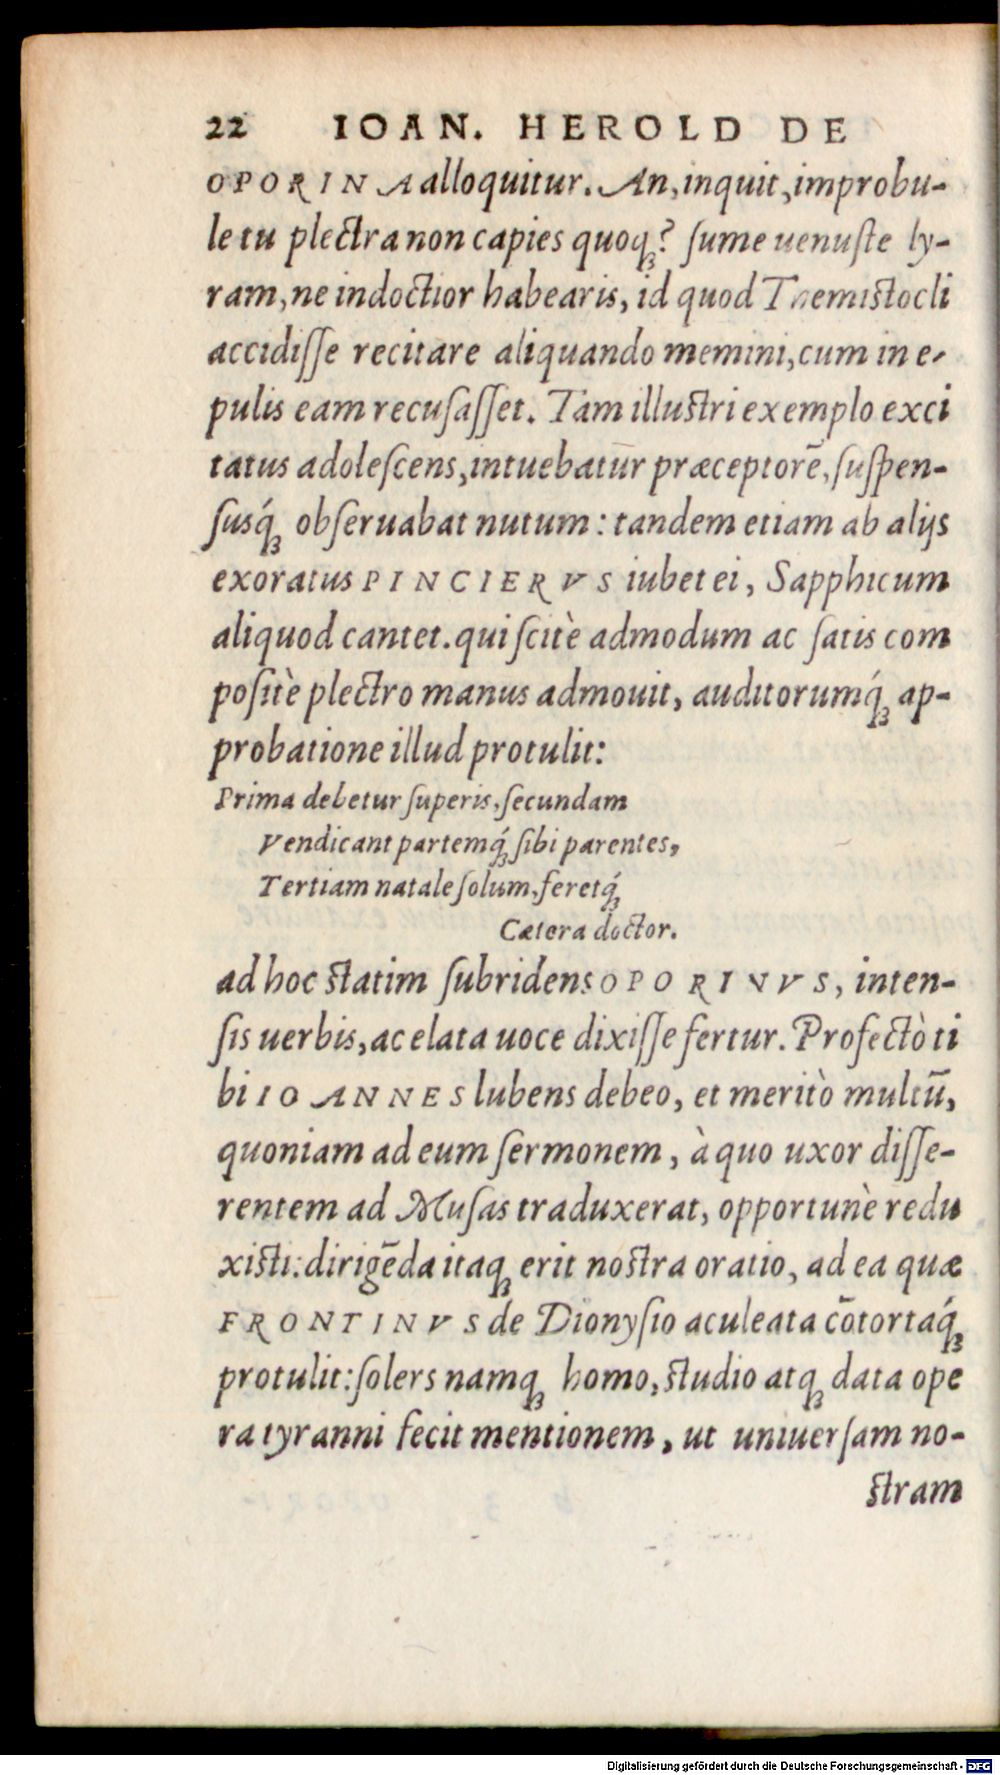 22 IOAN. HEROLD DE
OPORINA alloquitur. An, inquit, improbu-
le tu plectra non capies quoqꝫ? ſume uenuſte ly-
ram, ne indoctior habearis, id quod Themiſtocli
accidiſſe recitare aliquando memini, cum in e-
pulis eam recuſaſſet. Tam illuſtri exemplo exci
tatus adoleſcens, intuebatur præceptorē, ſuſpen-
ſusq́ꝫ obſeruabat nutum: tandem etiam ab alijs
exoratus PINCIERVS iubet ei, Sapphicum
aliquod cantet. qui ſcitè admodum ac ſatis com
poſitè plectro manus admouit, auditorumq́ꝫ ap-
probatione illud protulit:
Prima debetur ſuperis, ſecundam
Vendicant partemq́ꝫ ſibi parentes,
Tertiam natale ſolum, feretq́ꝫ
Cætera doctor.
ad hoc ſtatim ſubridens OPORINVS, inten-
ſis uerbis, ac elata uoce dixiſſe fertur. Profectò ti
bi IOANNES lubens debeo, et meritò multū,
quoniam ad eum ſermonem, à quo uxor diſſe-
rentem ad Muſas traduxerat, opportunè redu
xiſti: dirigēda itaqꝫ erit noſtra oratio, ad ea quæ
FRONTINVS de Dionyſio aculeata cōtortaq́ꝫ
protulit: ſolers namqꝫ homo, ſtudio atqꝫ data ope
ra tyranni fecit mentionem, ut uniuerſam no-
ſtram
Digitalisierung gefördert durch die Deutsche Forschungsgemeinschaft - DFG